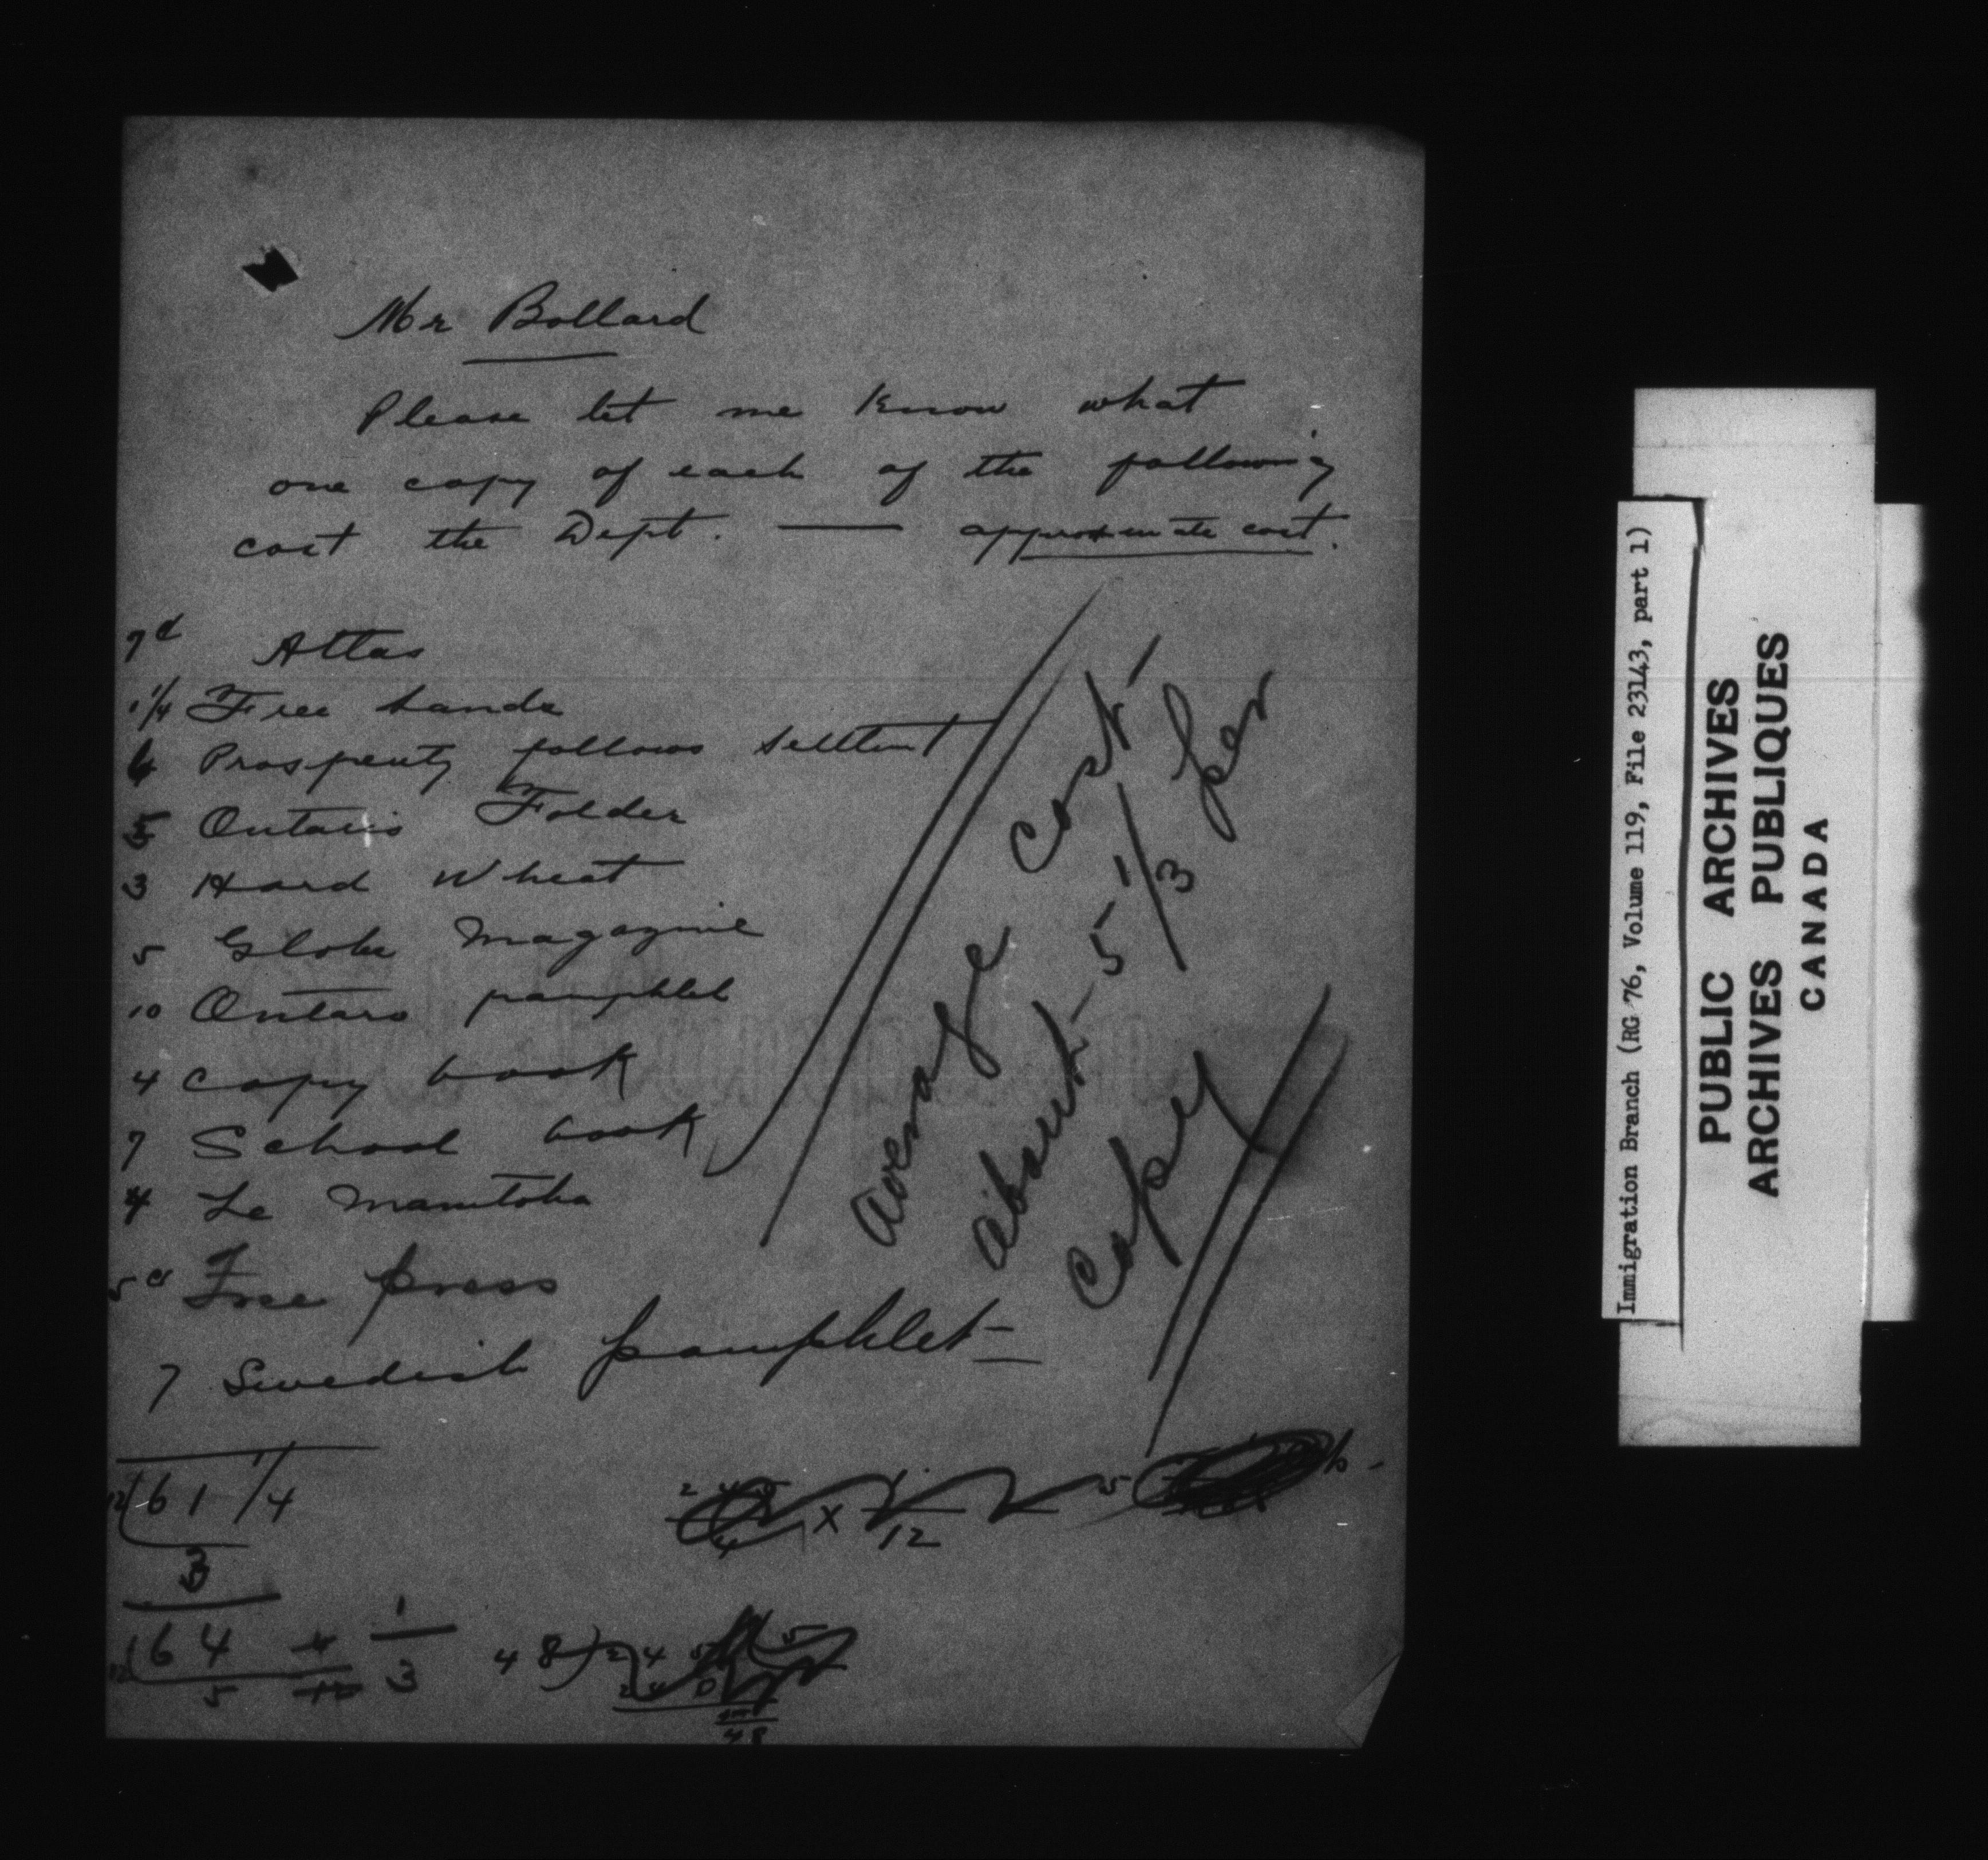 Mr Bollard
Please let me know what
one copy of each of the following
cost the Dept. — approximate cost.
7¢ Atlas
1 1/4 Free Lands
Prosperity follows settlemt
5 Ontario Folder
3 Hard Wheat
5 Globe Magazine
10 Ontaro pamphlet
4 Copy book
7 School book
4 Le Manitoba
5¢ Free press
7 Swedish pamphlet
Average Cost
about 5 1/3 per
Copy
12 61 1/4
3
12 64 4/12 1/3
5
x 1/12
5
48) 245
240
48
Immigration Branch (RG 76, Volume 119, File 23143, part 1)
PUBLIC ARCHIVES
ARCHIVES PUBLIQUES
CANADA